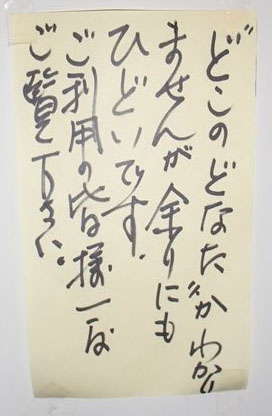 どこのどなたかわかり
ませんが余りにも
ひどいです。
ご利用の皆様一度
ご覧下さい。